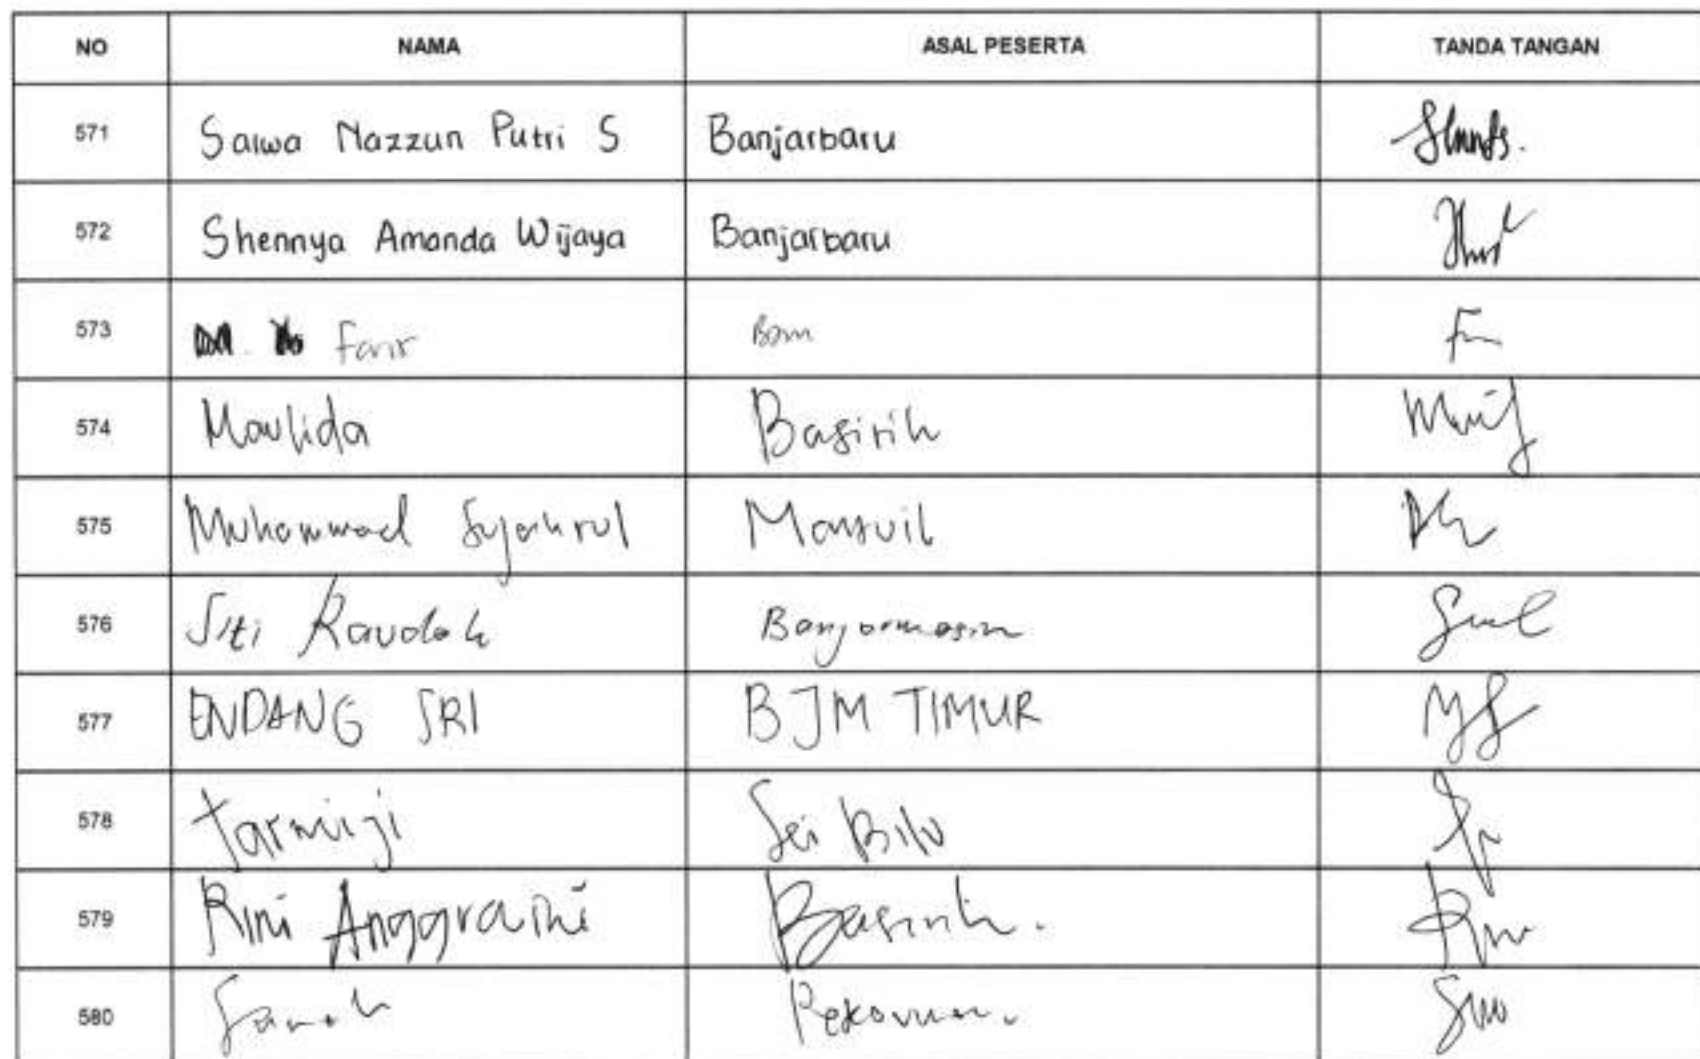 NO NAMA ASAL PESERTA TANDA TANGAN
571 Salwa Nazzun Putri S Banjarbaru
572 Shennya Amanda Wijaya Banjarbaru
573 Bjm
574 Maulida Basirih
575 Muhammad Syahrul Mantuil
576 Siti Raudah Banjarmasin
577 ENDANG SRI BJM TIMUR
578 Tarmiji Sei Bilu
579 Rini Anggraini Basirih.
580